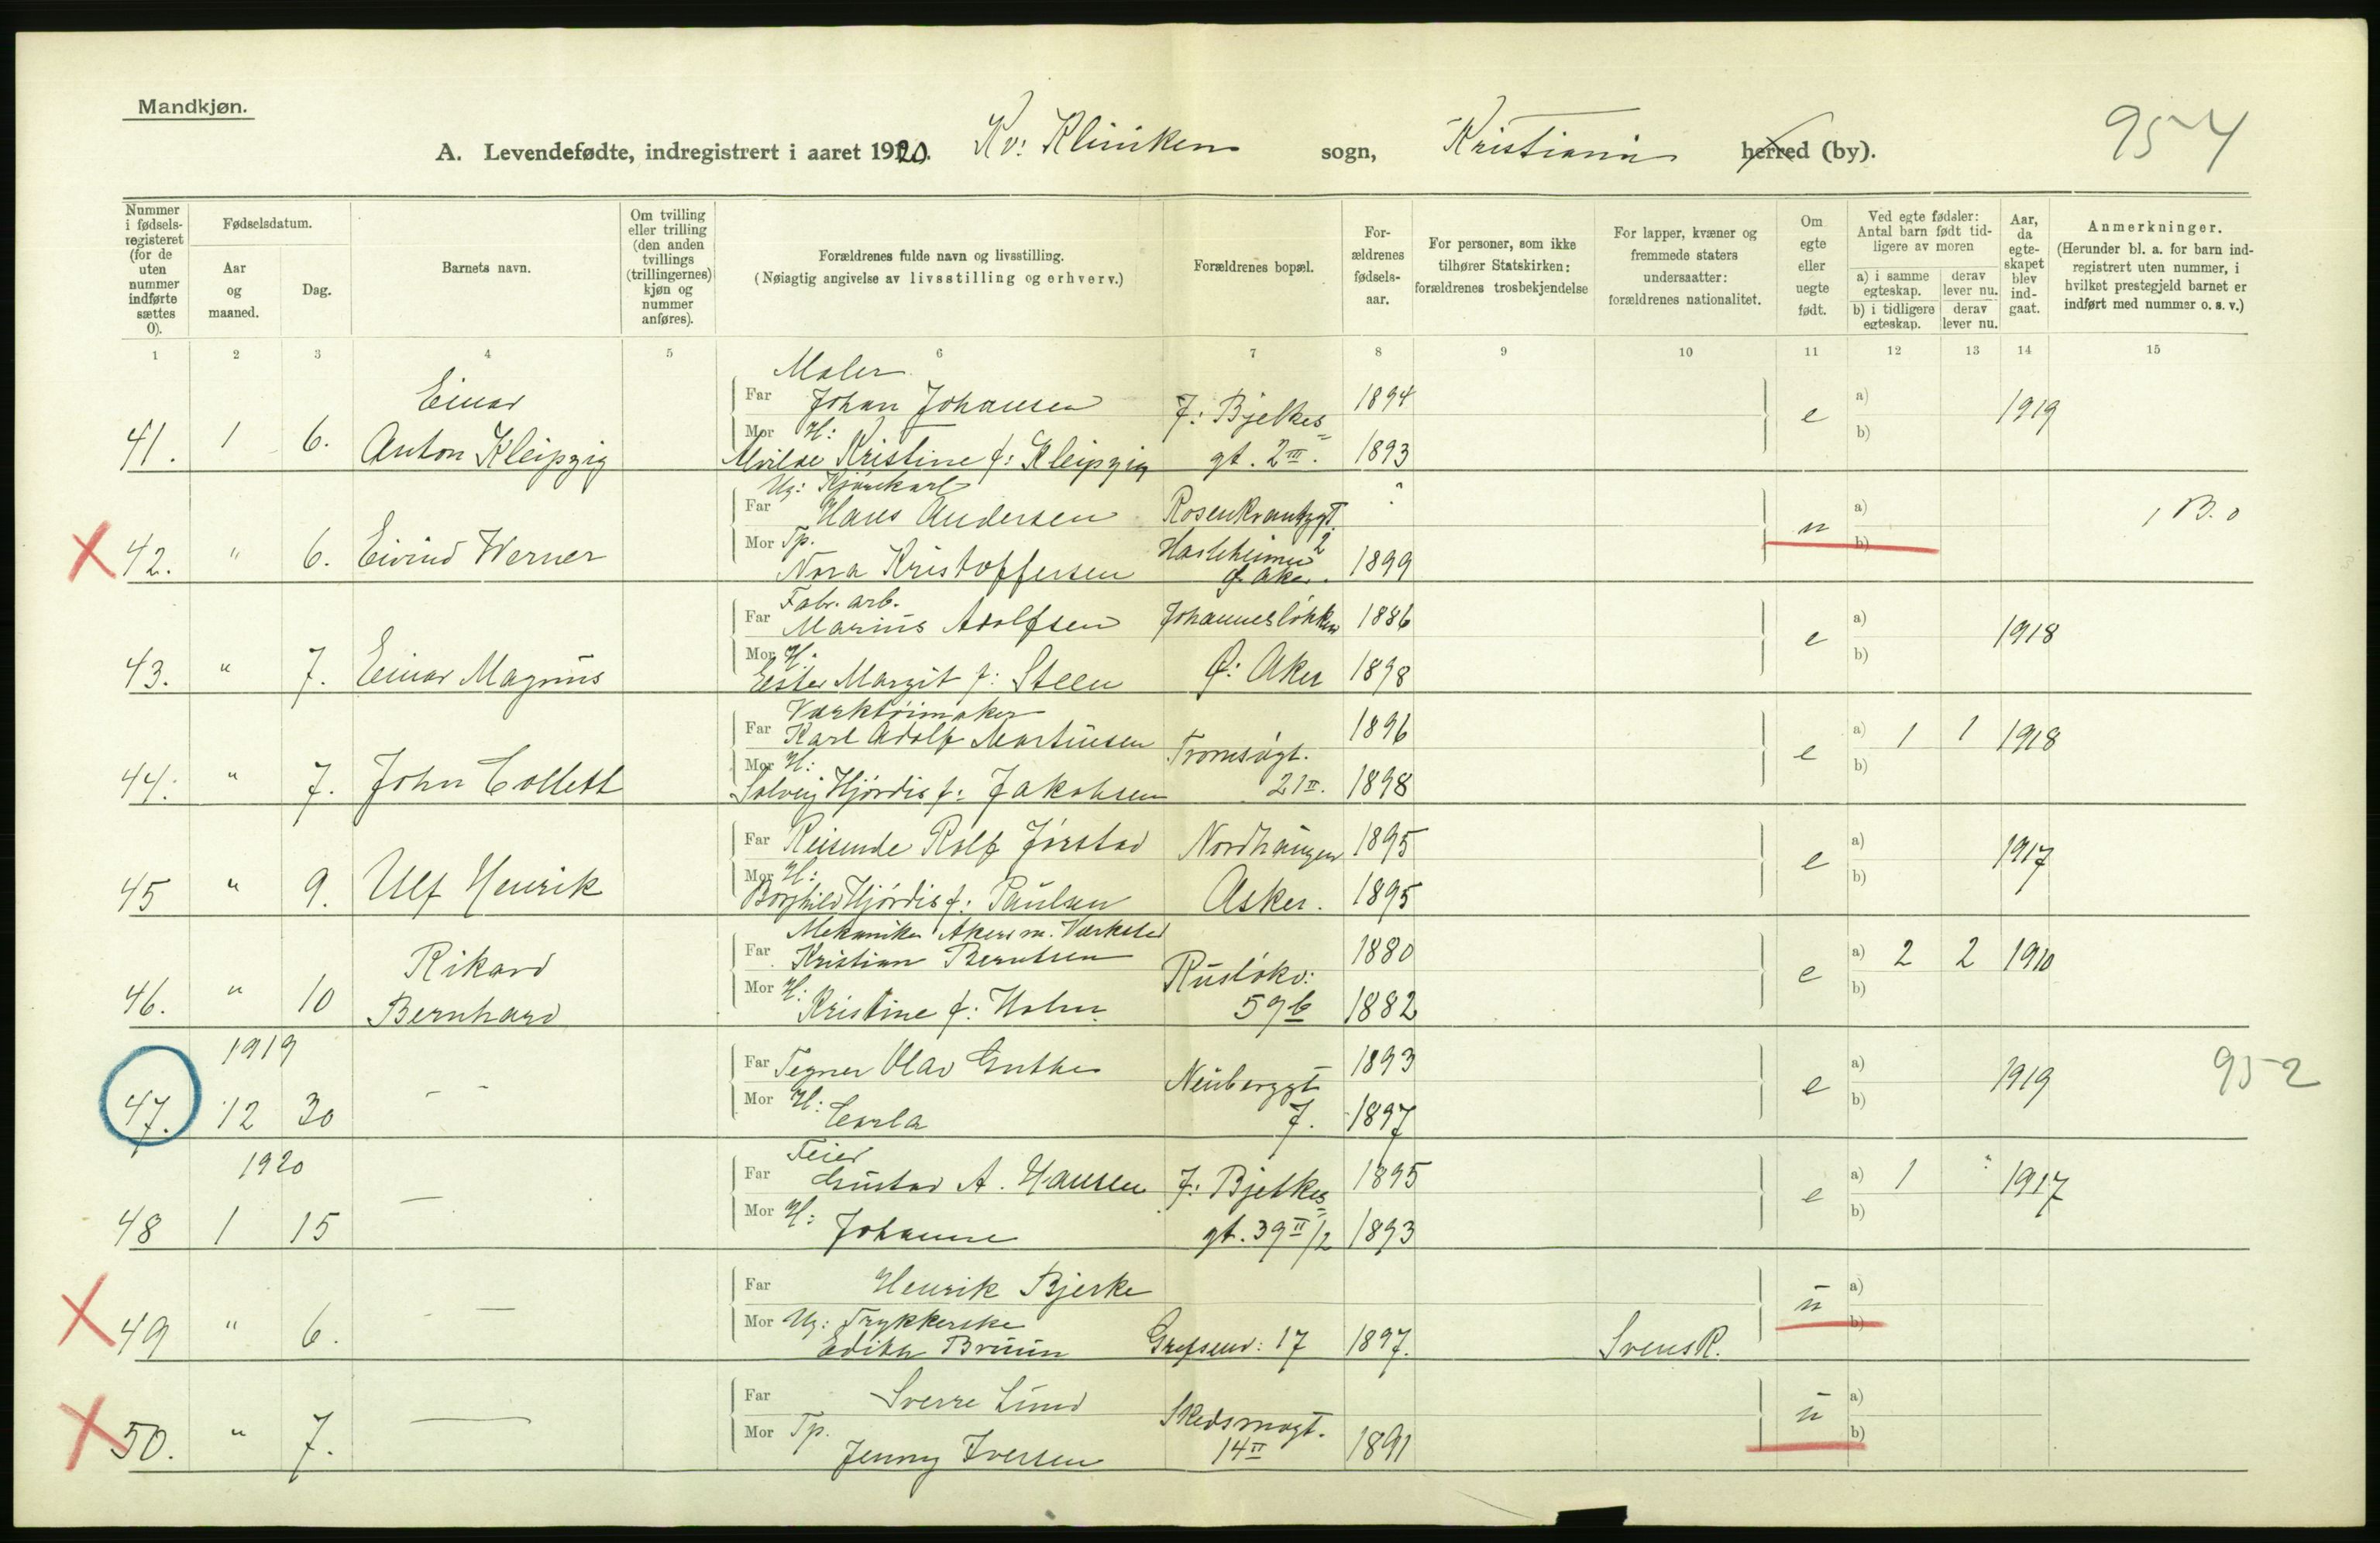 Mandkjøn.
A. Levendefødte, indregistrert i aaret 1920. Kv: Kliniken sogn, Kristiania herred (by). 954
Nummer i fødsels-registeret (for de uten nummer indførte sættes 0).
Fødselsdatum.
Aar og maaned.
Dag.
Barnets navn.
Om tvilling eller trilling (den anden tvillings (trillingernes) kjøn og nummer anføres).
Forældrenes fulde navn og livsstilling.
(Nøiagtig angivelse av livsstilling og erhverv.)
Forældrenes bopæl.
For-ældrenes fødsels-aar.
For personer, som ikke tilhører Statskirken: forældrenes trosbekjendelse
For lapper, kvæner og fremmede staters undersaatter: forældrenes nationalitet.
Om egte eller uegte født.
Ved egte fødsler: Antal barn født tid-ligere av moren
a) i samme egteskap.
derav lever nu.
b) i tidligere egteskap.
derav lever nu.
Aar, da egte-skapet blev ind-gaat.
Anmerkninger.
(Herunder bl. a. for barn ind-registrert uten nummer, i hvilket prestegjeld barnet er indført med nummer o. s. v.)
1 2 3 4 5 6 7 8 9 10 11 12 13 14 15
Maler
Einar Far Johan Johansen J: Bjelkes= 1894 e a) 1919
41. 1 6. Anton Kleipzig Mor H: Kristine f: Kleipzig gt. 2 III. 1893 b)
Ug: Kjørekarl
Far Hans Andersen Rosenkrantzgt. 2 ? u a) B.
42. " 6. Eivind Werner Mor Tp. Nora Kristoffersen Ø. Aker. 1899 b)
Fabr. arb.
Far Marius Adolfsen Johannesløkken 1886 e a) 1918
43. " 7. Einar Magnus Mor H: Ester Margit f: Steen Ø: Aker 1898 b)
Værktøimaker
Far Karl Adolf Martinsen Tromsøgt. 1896 e a) 1 1 1918
44. " 7. John Collett Mor H: Solveig Hjørdis f: Jakobsen 21 II. 1898 b)
Far Reisende Rolf Jørstad Nordhaugen 1895 e a) 1917
45 " 9. Ulf Henrik Mor H: Borghild Hjørdis f: Paulsen Asker. 1895 b)
Mekaniker Akers m. Værksted
Rikard Far Kristian Berntsen Rusløkv: 1880 e a) 2 2 1910
46. " 10 Bernhard Mor H: Kristine f: Holm 59 b 1882 b)
1919 Far Tegner Olav Guthe Neuberggt 1893 e a) 1919 952
47. 12 30 - - Mor H: Carla 7. 1897 b)
Feier
1920 Far Gustav A. Hansen J: Bjelkes= 1895 e a) 1 " 1917
48 1 15 — Mor H: Johanne gt. 39 II/2 1893 b)
Far Henrik Bjerke u a)
49 " 6. - — Mor Ug: Trykkerske Edith Bruun Grefsenv: 17 1897. Svensk. b)
Far Sverre Lund Skedsmogt. u a)
50. " 7. — Mor Tp. Jenny Iversen 14 II 1891 b)